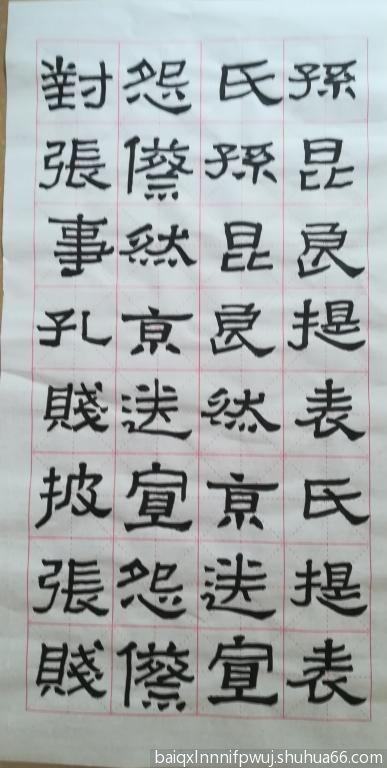 孫昆良提表氏提表
氏孫昆良然京送宣
怨然京送宣怨
對張事孔賤披張賤
baiqxlnnnifpwuj.shuhua66.com